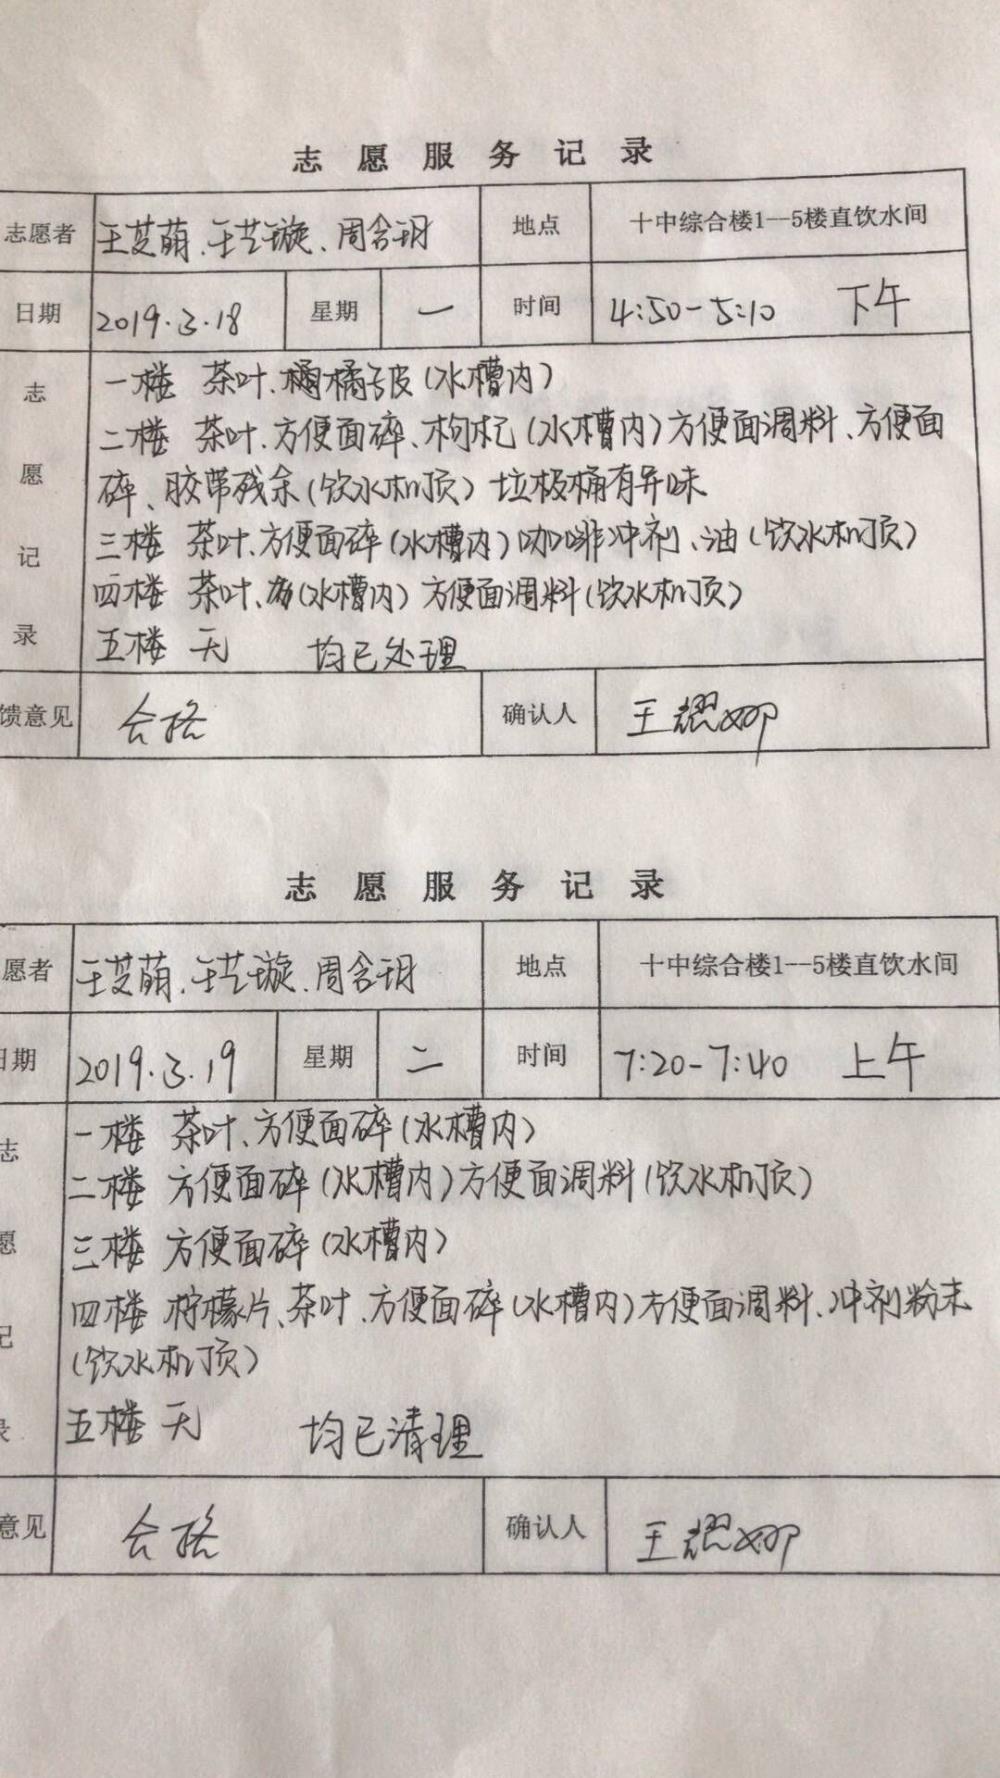 志愿服务记录
志愿者 王芝萌、王艺璇、周含玥 地点 十中综合楼1--5楼直饮水间
日期 2019.3.18 星期 一 时间 4:50-5:10 下午
志愿记录
一楼 茶叶、橘子皮(水槽内)
二楼 茶叶、方便面碎、枸杞(水槽内)方便面调料、方便面
碎、胶带残余(饮水机顶) 垃圾桶有异味
三楼 茶叶、方便面碎(水槽内)咖啡冲剂、油(饮水机顶)
四楼 茶叶、(水槽内) 方便面调料(饮水机顶)
五楼 无 均已处理
馈意见 合格 确认人 王
志愿服务记录
愿者 王芝萌、王艺璇、周含玥 地点 十中综合楼1--5楼直饮水间
日期 2019.3.19 星期 二 时间 7:20-7:40 上午
志愿记录
一楼 茶叶、方便面碎(水槽内)
二楼 方便面碎(水槽内)方便面调料(饮水机顶)
三楼 方便面碎(水槽内)
四楼 柠檬片、茶叶、方便面碎(水槽内)方便面调料、冲剂粉末
(饮水机顶)
五楼 无 均已清理
意见 合格 确认人 王